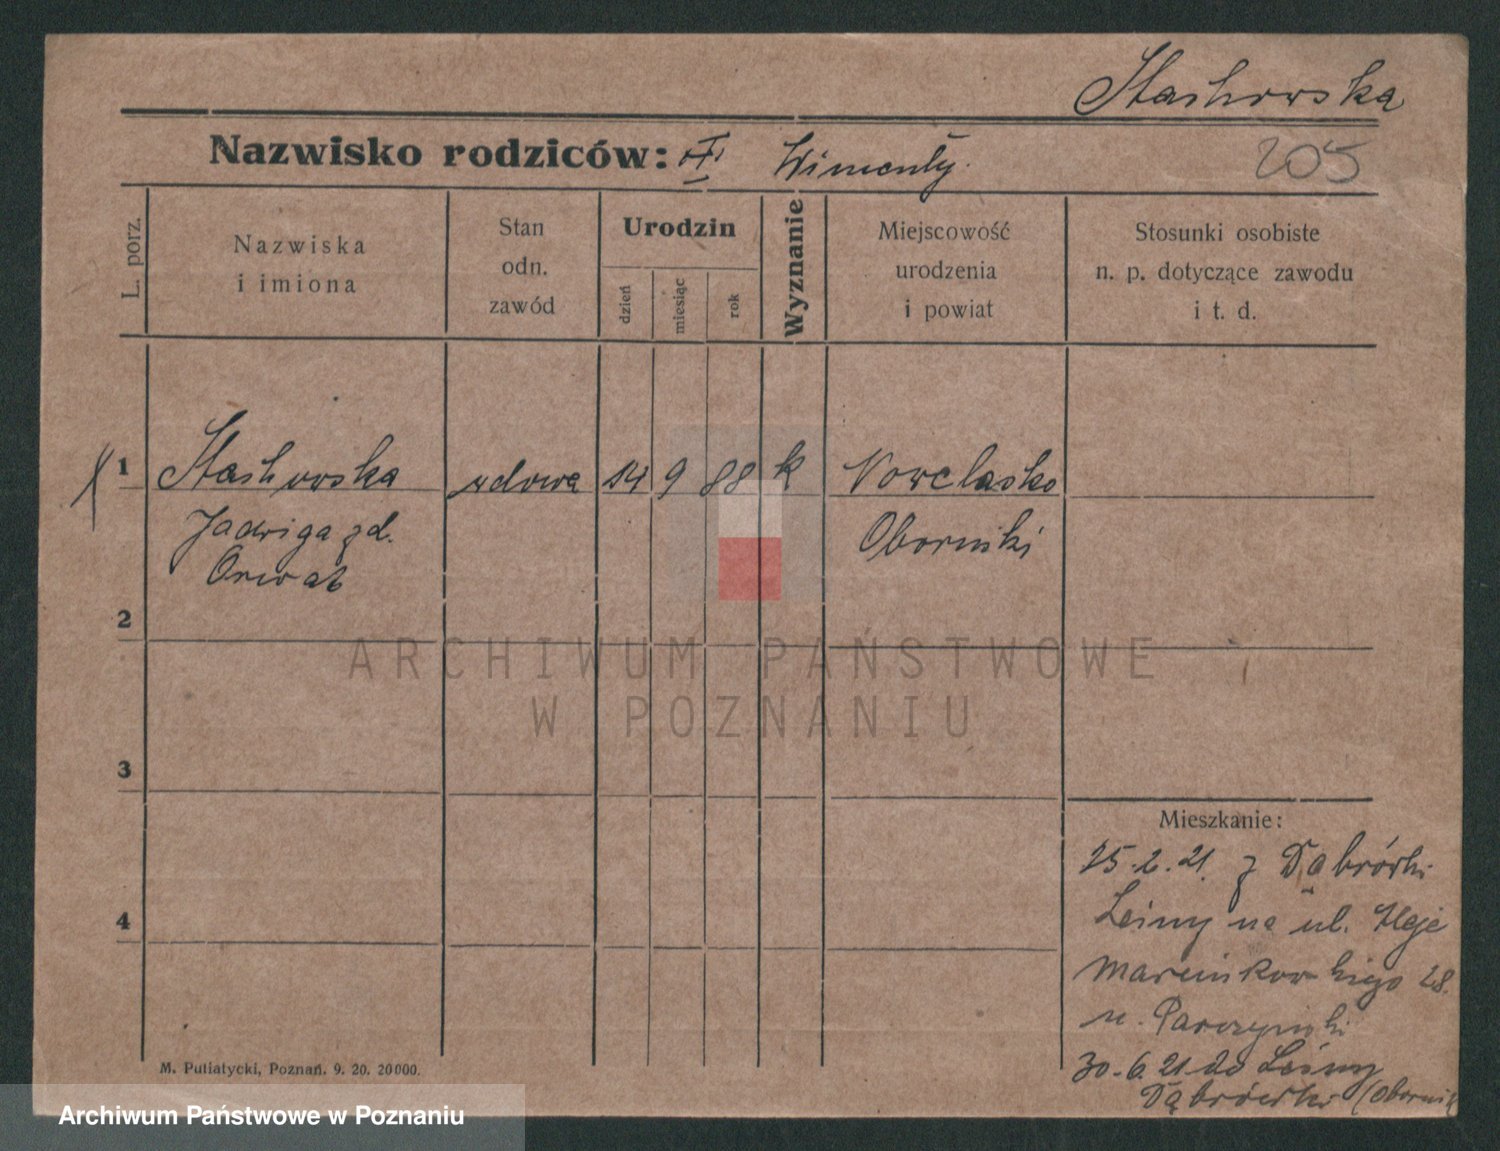 Stachowska
Nazwisko rodziców: Wincenty.
205
L. porz.
Nazwiska
i imiona
Stan
odn.
zawód
Urodzin
dzień
miesiąc
rok
Wyznanie
Miejscowość
urodzenia
i powiat
Stosunki osobiste
n. p. dotyczące zawodu
i t. d.
1 Stachowska wdowa 14 9 88 k
Jadwiga zd. Oborniki
2
3
4
Mieszkanie:
25.2.21. z Dąbrówki
Leśny na ul. Aleje
Marcinkowskiego 28.
u. Parczyński
30.6.21 do Leśny
Dąbrówki (Obornik
M. Putiatycki, Poznań. 9. 20. 20000.
ARCHIWUM PAŃSTWOWE
W POZNANIU
Archiwum Państwowe w Poznaniu